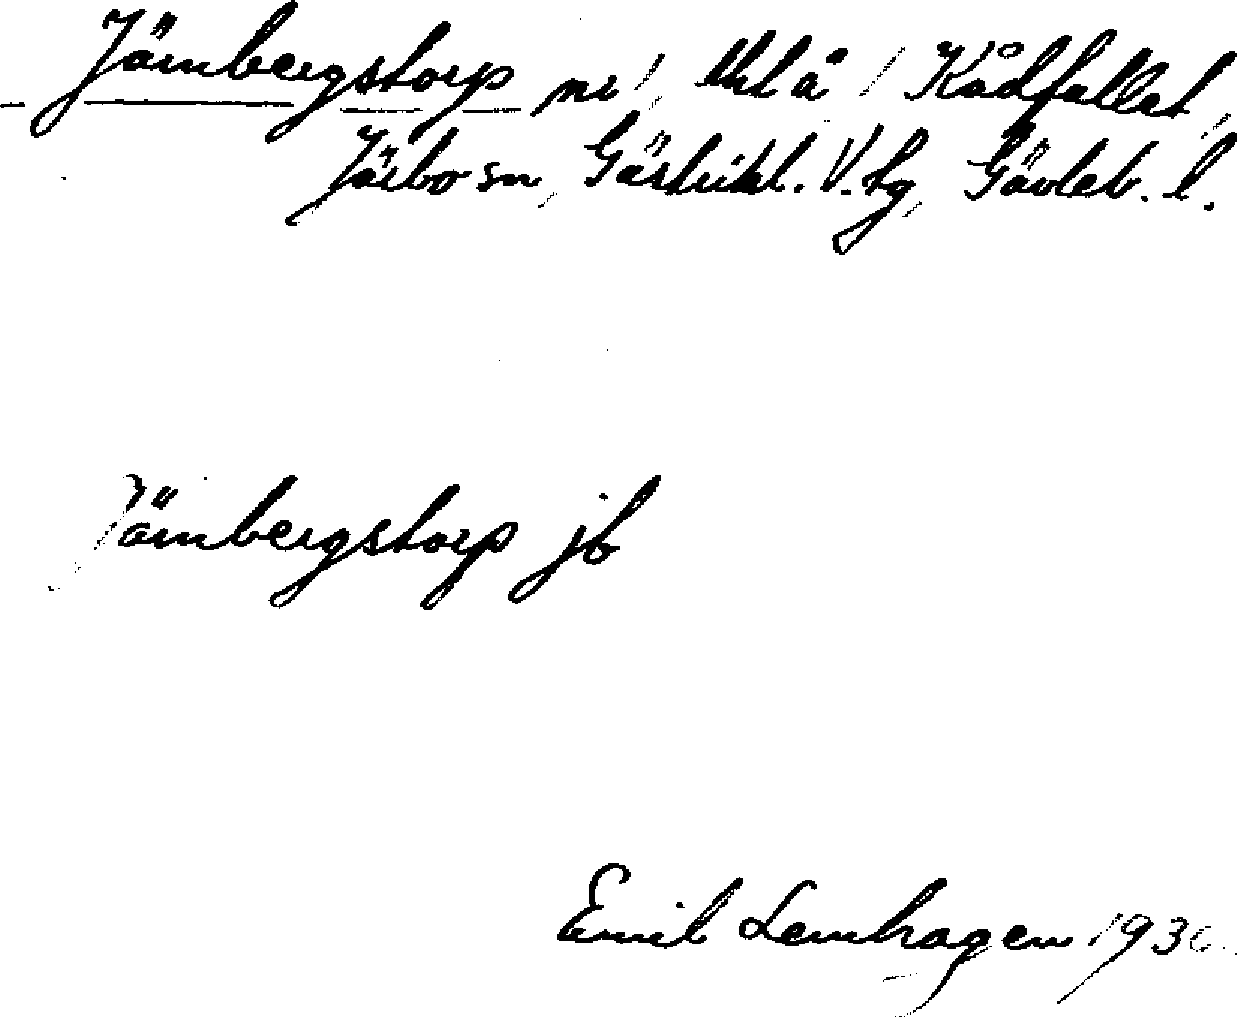 Järnbergstorp nr 1, Utl å 1 Kådfallet,
Järbo sn, Gästrikl. V. tg, Gävleb. l.
Järnbergstorp jb
Emil Lernhagen 1930